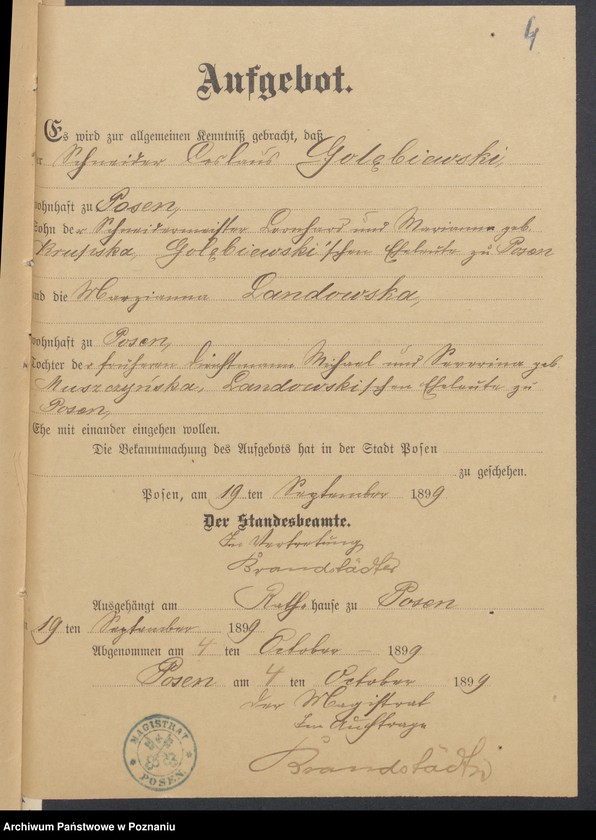 4
Aufgebot.
Es wird zur allgemeinen Kenntniß gebracht, daß
er Schneider Ceslaus Golębiewski,
wohnhaft zu Posen,
Sohn der Schneidermeister Leonhard und Marianna geb.
Krupska, Golębiewski'schen Eheleute zu Posen
und die Marzianna Landowska,
wohnhaft zu Posen,
Tochter der früheren Dienstmann Michael und Severina geb.
Muszczyńska, Landowskischen Eheleute zu
Posen,
Ehe mit einander eingehen wollen.
Die Bekanntmachung des Aufgebots hat in der Stadt Posen
zu geschehen.
Posen, am 19 ten September 1899
Der Standesbeamte.
In Vertretung
Brandstädter
Ausgehängt am Rathhause zu Posen
19 ten September 1899
Abgenommen am 4 ten October 1899
Posen am 4 ten October 1899
Der Magistrat
Im Auftrage
Brandstädter
MAGISTRAT
POSEN.
Archiwum Państwowe w Poznaniu